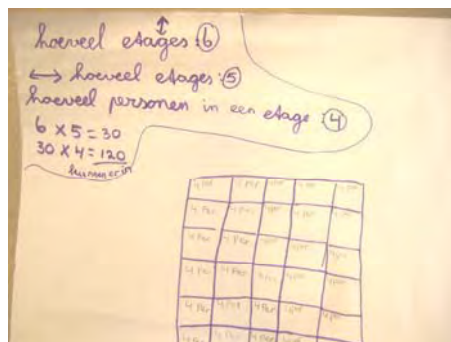 hoeveel etages ↕: 6
↔ hoeveel etages: 5
hoeveel personen in een etage: 4
6 x 5 = 30
30 x 4 = 120
4 per 4 per 4 per 4 per 4 per
4 per 4 per 4 per 4 per 4 per
4 per 4 per 4 per 4 per 4 per
4 per 4 per 4 per 4 per 4 per
4 per 4 per 4 per 4 per 4 per
4 per 4 per 4 per 4 per